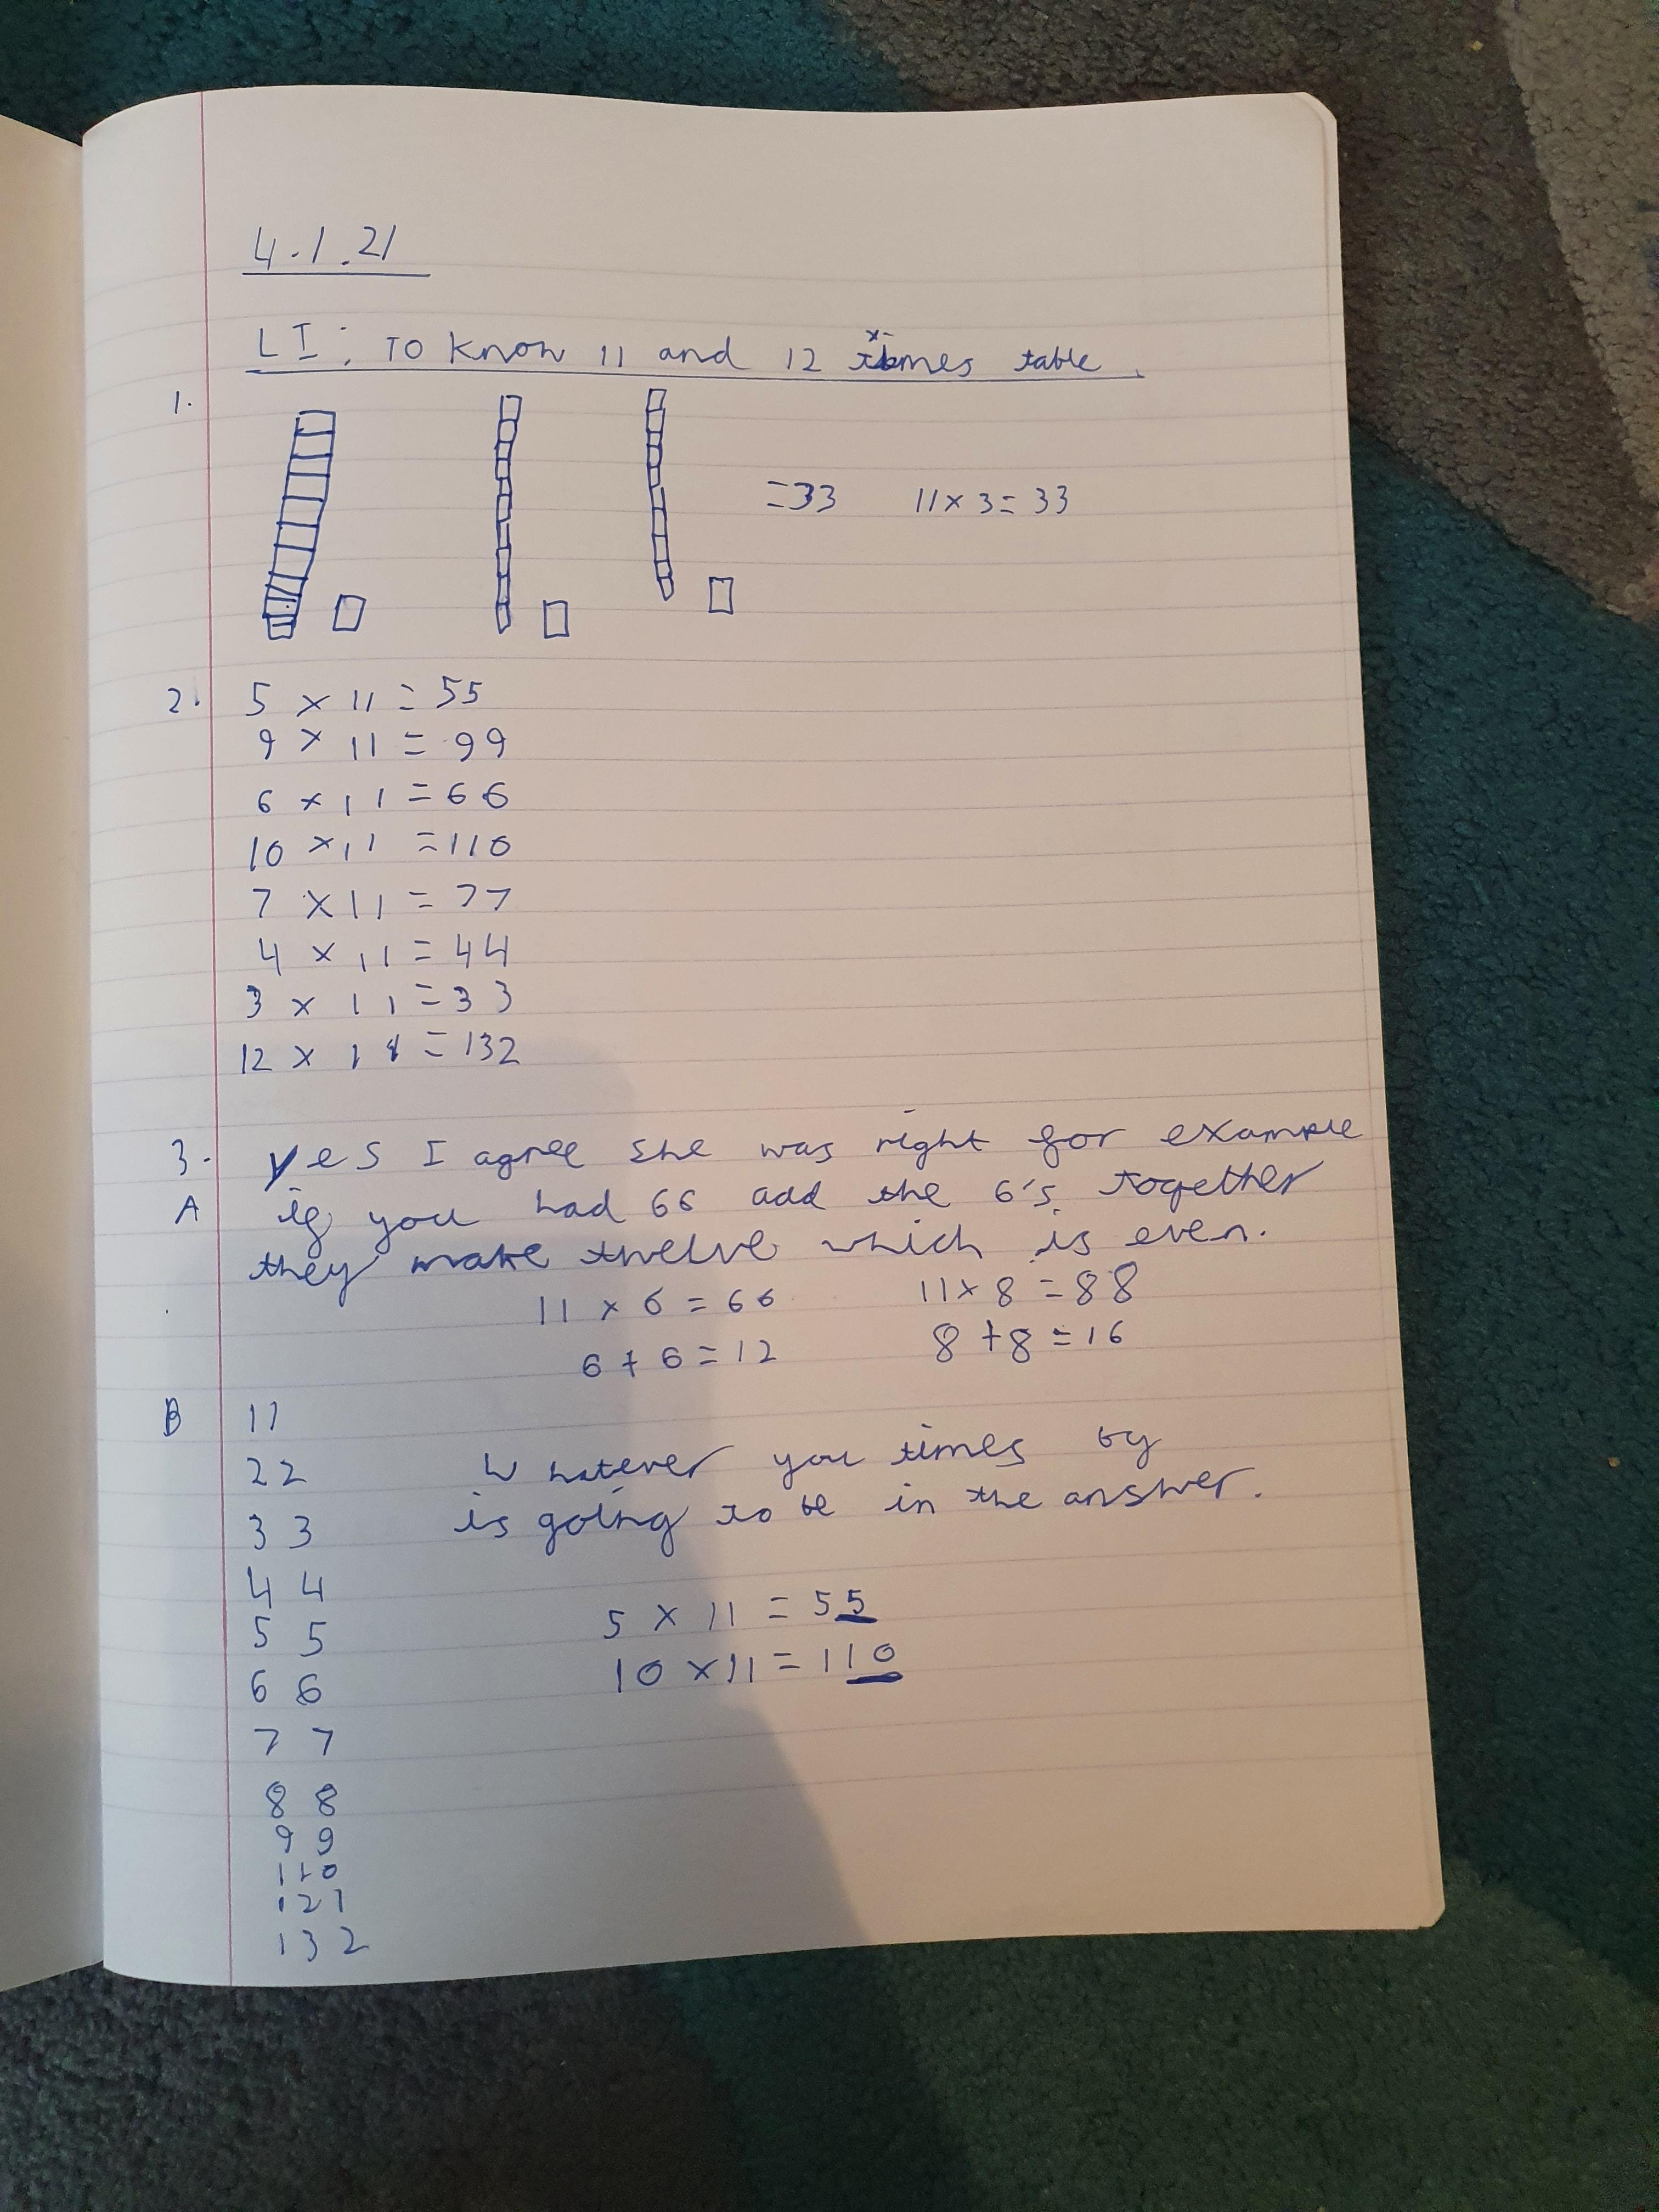 4.1.21
LI: To know 11 and 12 times table.
1.
=33 11 x 3 = 33
2. 5 x 11 = 55
9 x 11 = 99
6 x 11 = 66
10 x 11 = 110
7 x 11 = 77
4 x 11 = 44
3 x 11 = 33
12 x 11 = 132
3. Yes I agree she was right for example
A if you had 66 add the 6's together
they make twelve which is even.
11 x 6 = 66 11 x 8 = 88
6 + 6 = 12 8 + 8 = 16
B 11
22 Whatever you times by
33 is going to be in the answer.
44
55 5 x 11 = 55
66 10 x 11 = 110
77
88
99
110
121
132